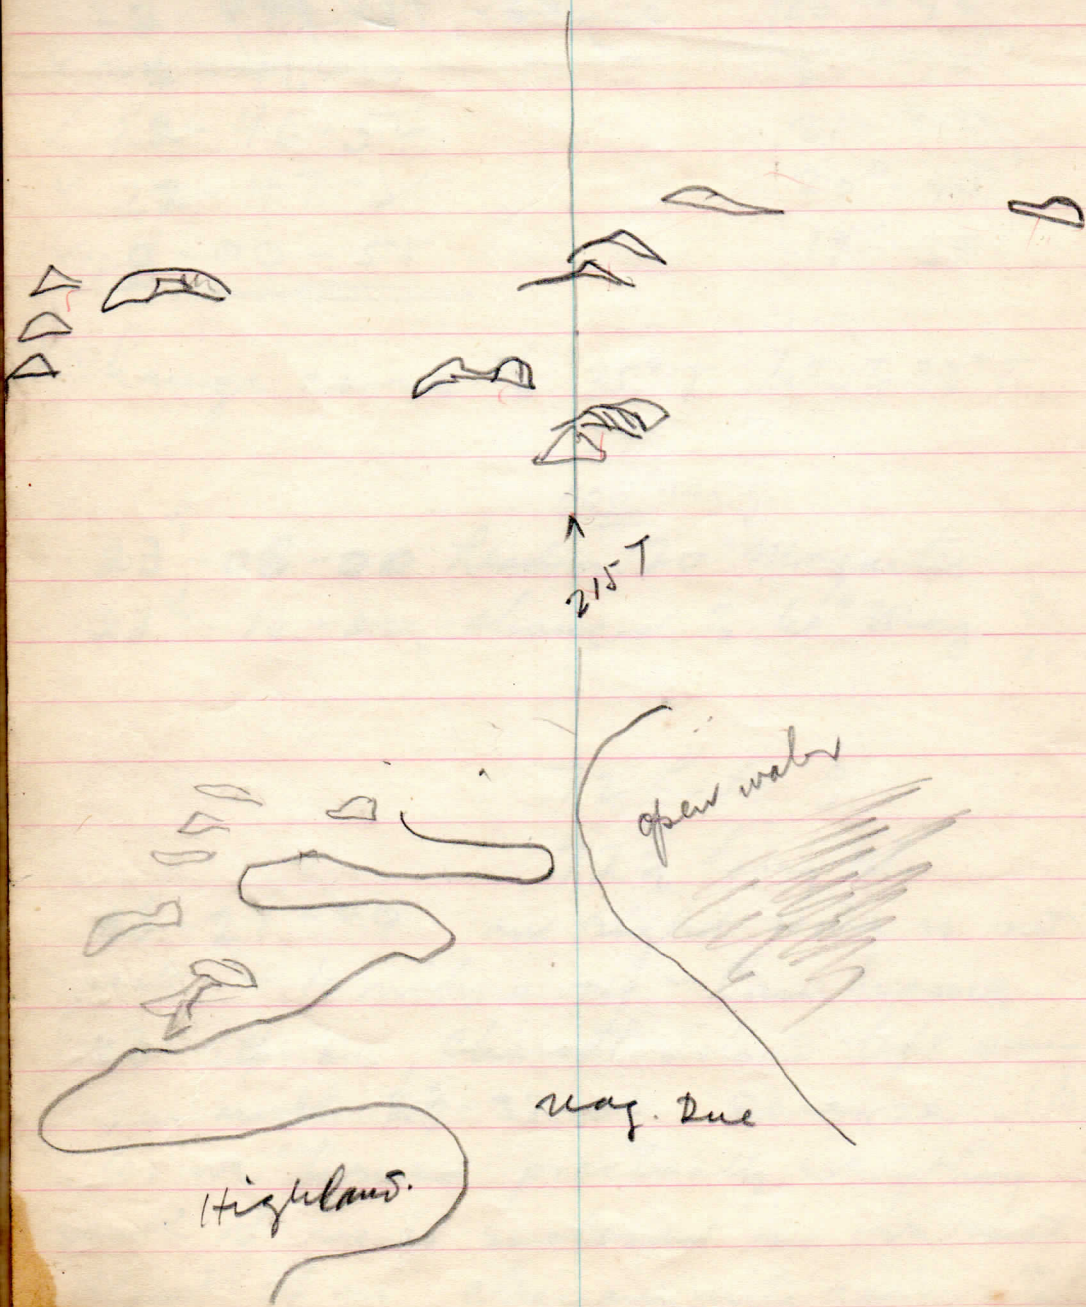 215 T
open water
Mag. Due
Highland.